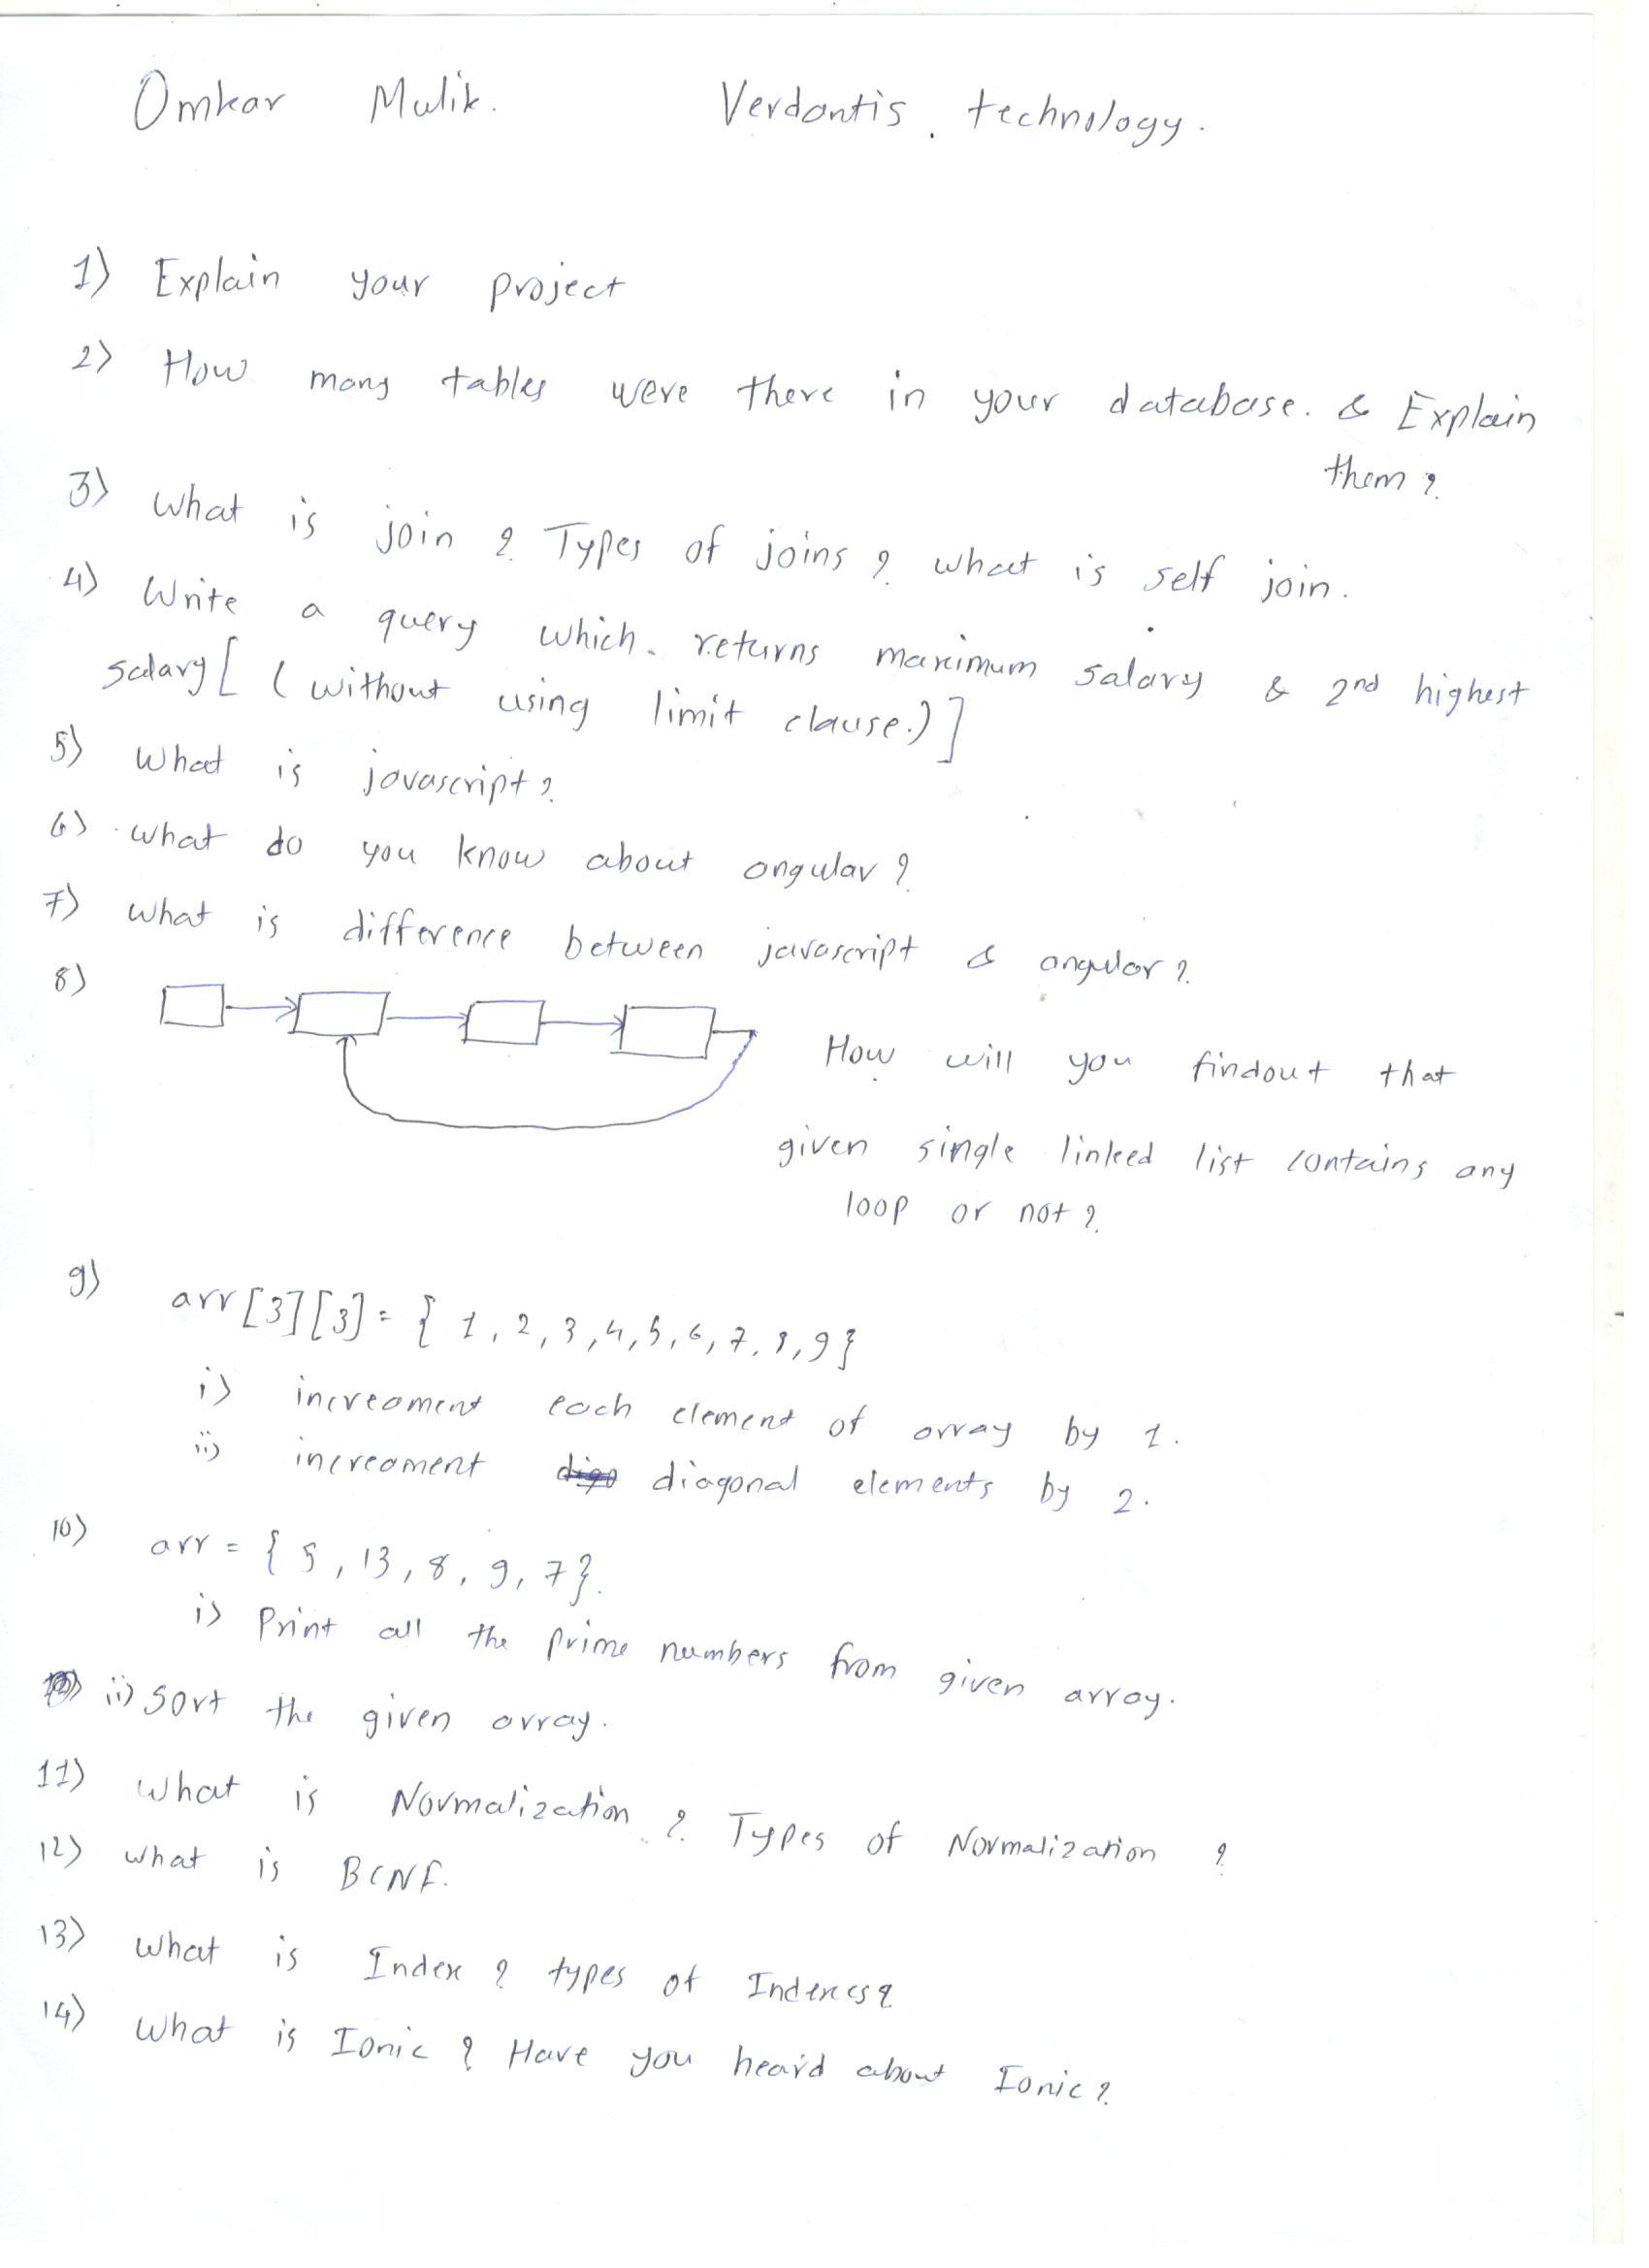 Omkar Mulik. Verdantis. technology.
1) Explain your project
2) How many tables were there in your database. & Explain
them?
3) What is join? Types of joins? what is self join.
4) Write a query which returns maximum salary & 2nd highest
salary [ (without using limit clause.) ]
5) What is javascript?
6) what do you know about angular?
7) what is difference between javascript & angular?
8)
How will you findout that
given single linked list contains any
loop or not?
9) arr[3][3] = { 1, 2, 3, 4, 5, 6, 7, 8, 9 }
i) increament each element of array by 1.
ii) increament diagonal elements by 2.
10) arr = { 5, 13, 8, 9, 7 }.
i) Print all the prime numbers from given array.
ii) sort the given array.
11) What is Normalization? Types of Normalization ?
12) what is BCNF.
13) What is Index? types of Indexes?
14) What is Ionic? Have you heard about Ionic?